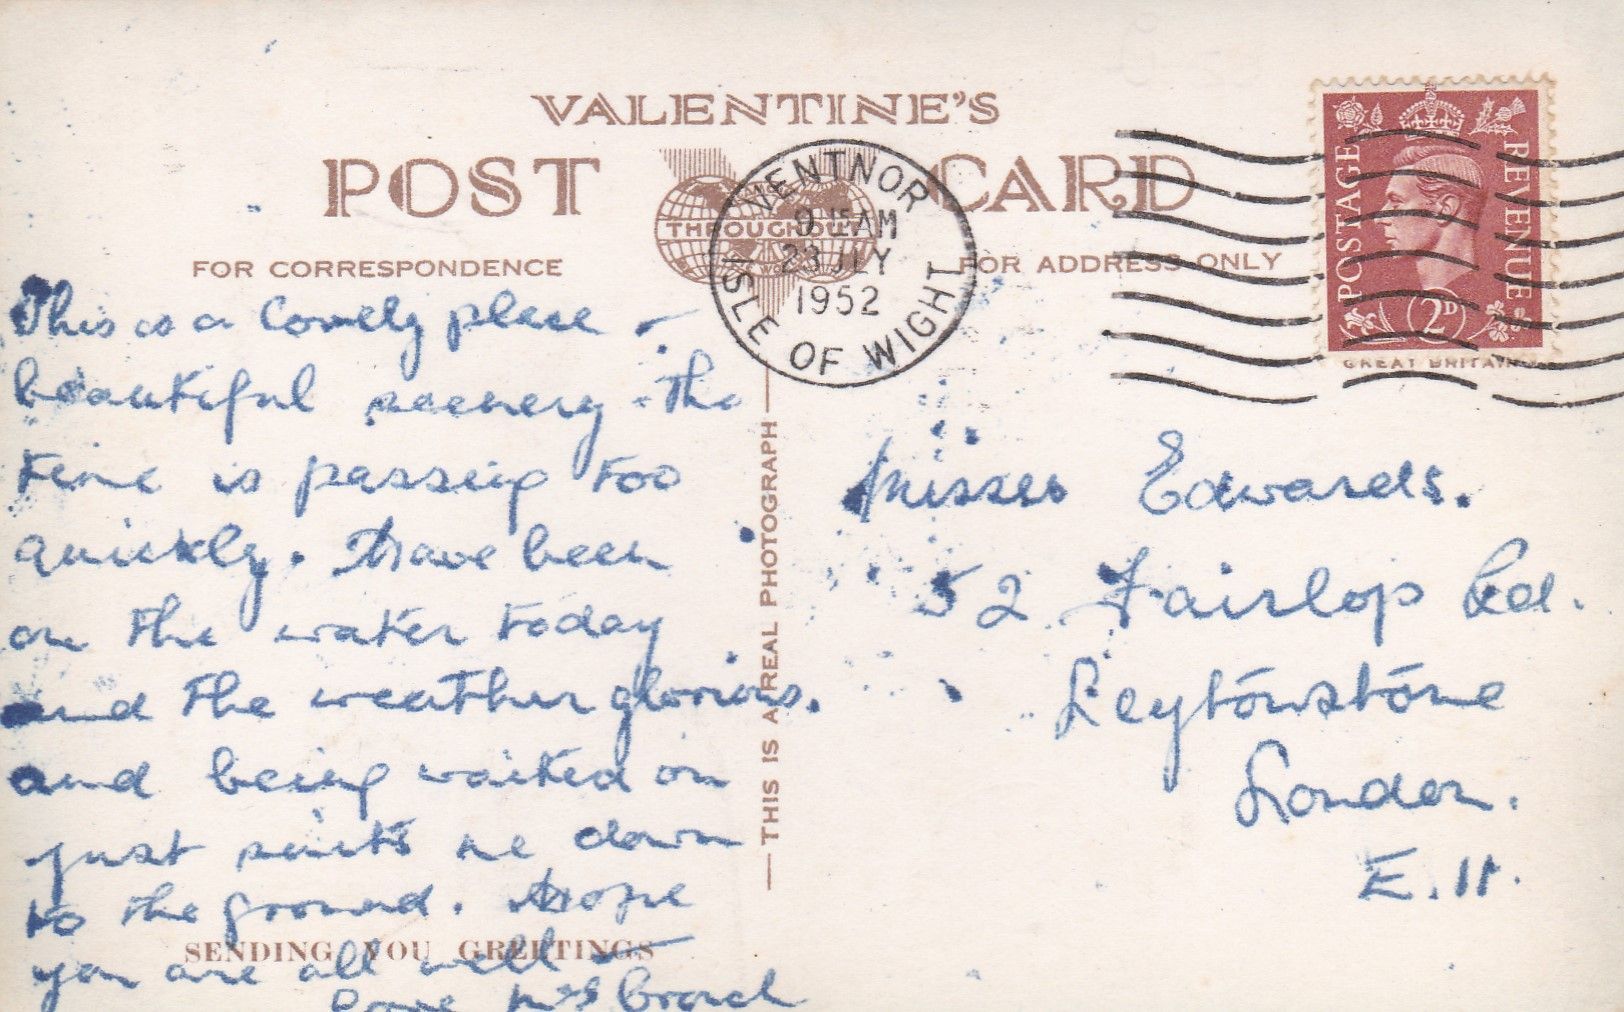 VALENTINE'S
POST CARD
THROUGHOUT
WO
FOR CORRESPONDENCE
FOR ADDRESS ONLY
VENTNOR
9 15 AM
23 JLY
1952
ISLE OF WIGHT
POSTAGE
REVENUE
2D
GREAT BRITAIN
This is a lovely place -
beautiful scenery - the
time is passing too
quickly. Have been
on the water today
and the weather glorious.
and being waited on
just suits me down
to the ground. Hope
you are all well -
Love Mrs
SENDING YOU GREETINGS
THIS IS A REAL PHOTOGRAPH
Misses Edwards.
52 Fairlop Rd.
Leytonstone
London.
E.11.